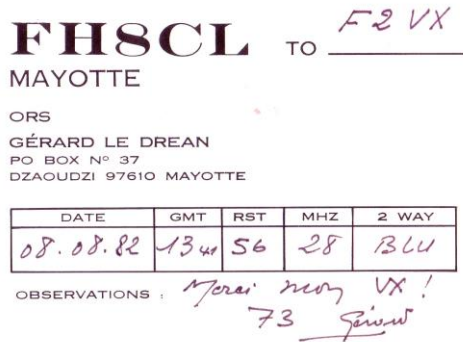 FH8CL TO F2VX
MAYOTTE
ORS
GÉRARD LE DREAN
PO BOX Nº 37
DZAOUDZI 97610 MAYOTTE
DATE GMT RST MHZ 2 WAY
08.08.82 13 41 56 28 BLU
OBSERVATIONS : Merci mon VX !
73 Gérard